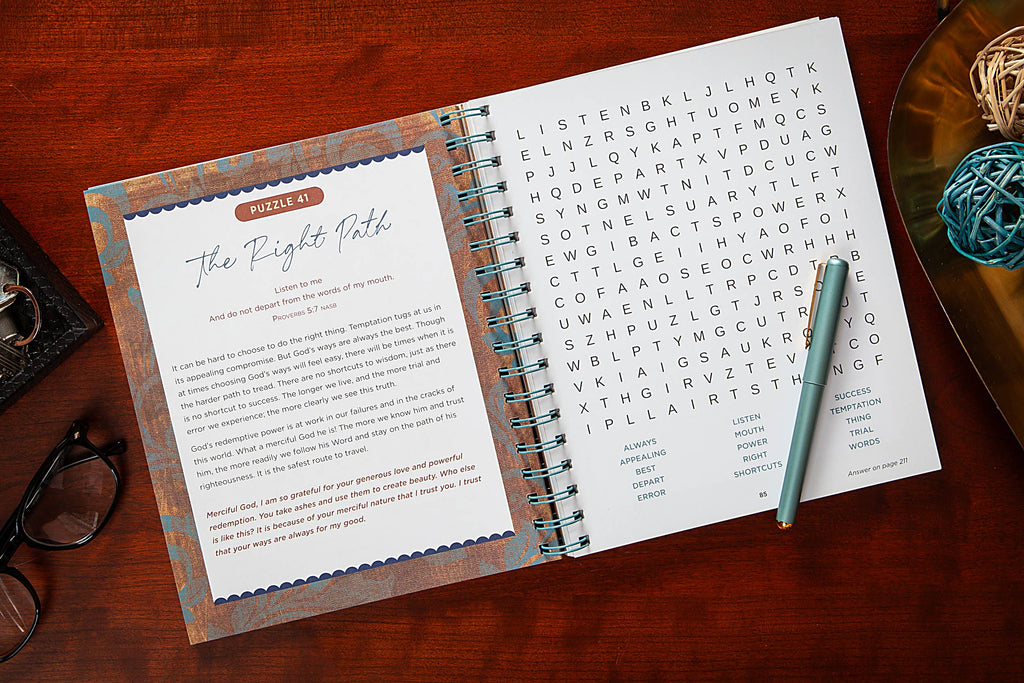 PUZZLE 41
the Right Path
Listen to me
And do not depart from the words of my mouth.
PROVERBS 5:7 NASB
It can be hard to choose to do the right thing. Temptation tugs at us in
its appealing compromise. But God's ways are always the best. Though
at times choosing God's ways will feel easy, there will be times when it is
the harder path to tread. There are no shortcuts to wisdom, just as there
is no shortcut to success. The longer we live, and the more trial and
error we experience; the more clearly we see this truth.
God's redemptive power is at work in our failures and in the cracks of
this world. What a merciful God he is! The more we know him and trust
him, the more readily we follow his Word and stay on the path of his
righteousness. It is the safest route to travel.
Merciful God, I am so grateful for your generous love and powerful
redemption. You take ashes and use them to create beauty. Who else
is like this? It is because of your merciful nature that I trust you. I trust
that your ways are always for my good.
L I S T E N B K L J L H Q T K
E L N Z R S G H T U O M E Y K
P J J L Q Y K A P T F M Q C S
H Q D E P A R T X V P D U A G
S Y N G M W T N I T D C U C W
S O T N E L S U A R Y T L F T
E W G I B A C T S P O W E R X
C T T L G E I I H Y A O F O I
C O F A A O S E O C W R H H H
U W A E N L L T R P C D T B
S Z H P U Z L G T J R S E
W B L P T Y M G C U T R U T
V K I A I G S A U K R Y Q
X T H G I R V Z T E V C O
I P L L A I R T S T H N G F
ALWAYS
APPEALING
BEST
DEPART
ERROR
LISTEN
MOUTH
POWER
RIGHT
SHORTCUTS
SUCCESS
TEMPTATION
THING
TRIAL
WORDS
85
Answer on page 211